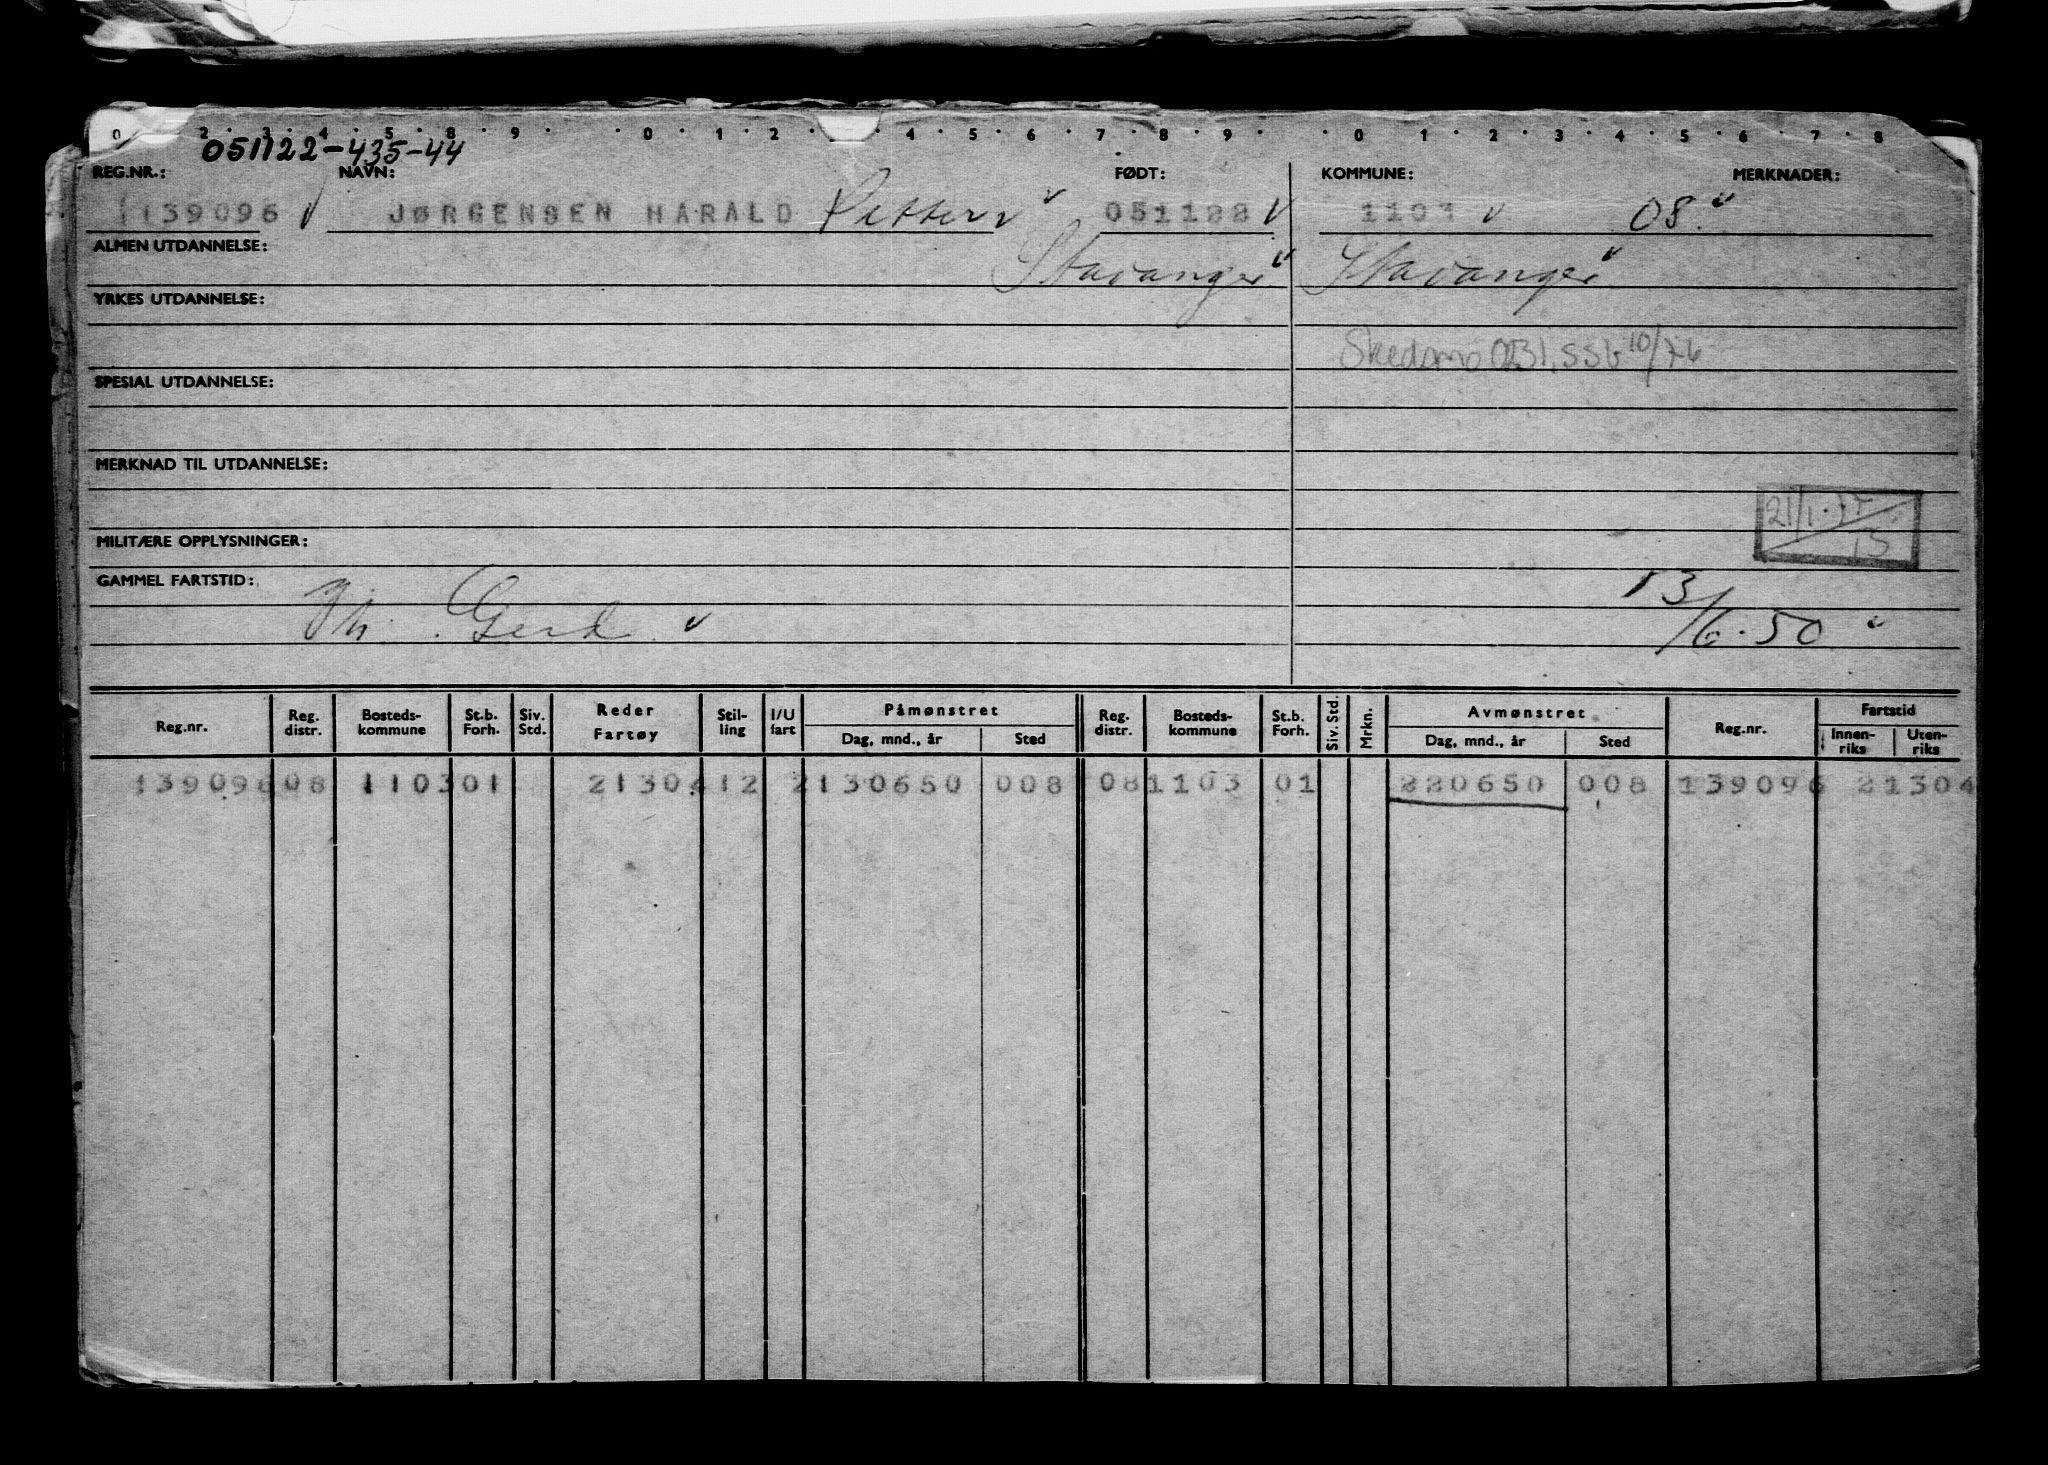 0 2 3 4 5 8 9 0 1 2 4 5 6 7 8 9 0 1 2 3 4 5 6 7 8
051122-435-44
REG.NR.: NAVN: FØDT: KOMMUNE: MERKNADER:
139096 JØRGENSEN HARALD Petter 051122 1103 08
ALMEN UTDANNELSE: Stavanger Stavanger
YRKES UTDANNELSE:
Skedsmo 0231, SSb 10/76
SPESIAL UTDANNELSE:
MERKNAD TIL UTDANNELSE:
21/1
15
MILITÆRE OPPLYSNINGER:
GAMMEL FARTSTID:
Gerd 13/6.50
Reg.nr. Reg. distr. Bosteds-kommune St.b. Forh. Siv. Std. Reder Fartøy Stil-ling I/U fart Påmønstret Dag, mnd., år Sted Reg. distr. Bosteds-kommune St.b. Forh. Siv. Std. Mrkn. Avmønstret Dag, mnd., år Sted Reg.nr. Fartstid Innen-riks Uten-riks
139096 08 1103 01 21304 12 2 130650 008 08 1103 01 220650 008 139096 21304